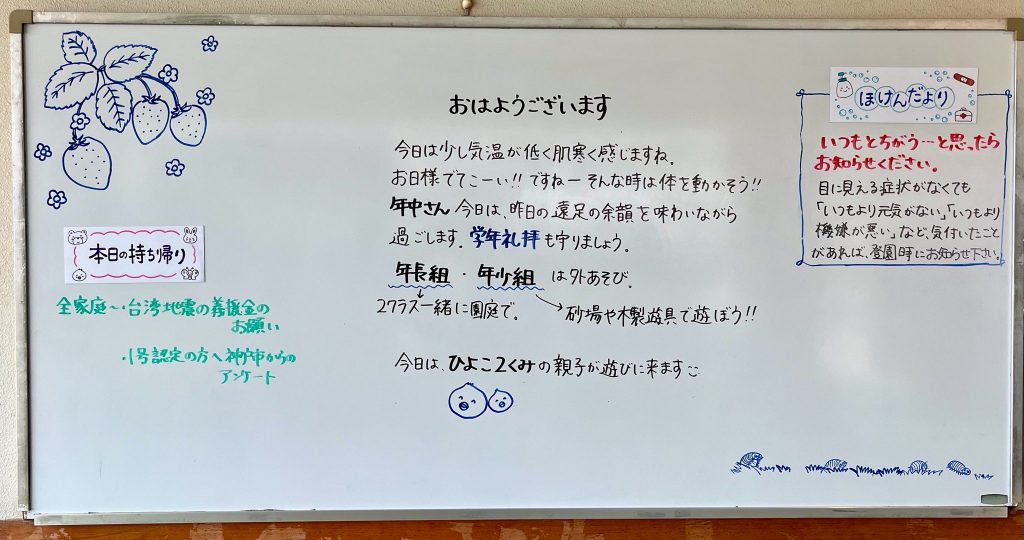 おはようございます
今日は少し気温が低く肌寒く感じますね。
お日様でてこーい!! ですねー そんな時は体を動かそう!!
年中さん 今日は、昨日の遠足の余韻を味わいながら
過ごします。学年礼拝も守りましょう。
年長組 ・ 年少組 は外あそび。
2クラス一緒に園庭で。
砂場や木製遊具で遊ぼう!!
今日は、ひよこ2くみの親子が遊びに来ます
本日の持ち帰り
全家庭〜・台湾地震の義援金の
お願い
・1号認定の方へ神戸市からの
アンケート
ほけんだより
いつもとちがう…と思ったら
お知らせください。
目に見える症状がなくても
「いつもより元気がない」「いつもより
機嫌が悪い」など、気付いたこと
があれば、登園時にお知らせ下さい。